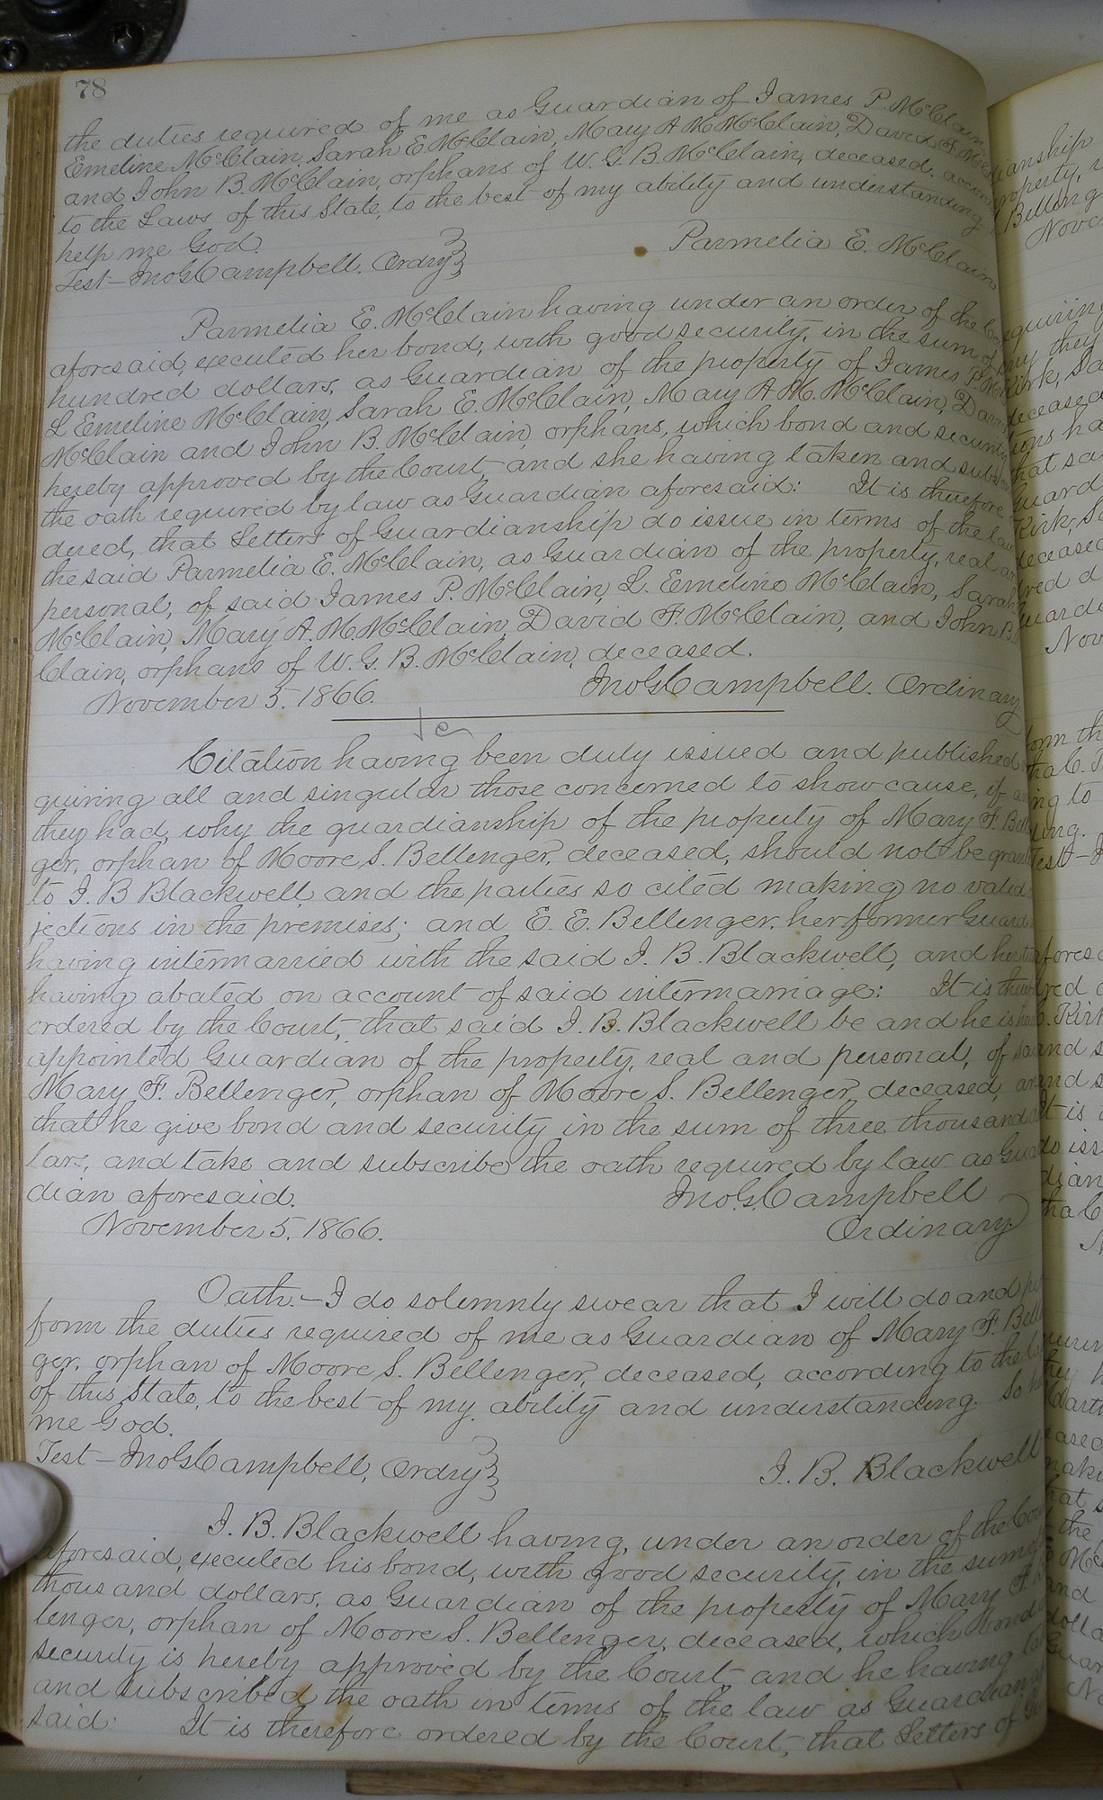 78
the duties required of me as Guardian of James P. McClain
Emeline McClain, Sarah E. McClain, Mary A M McClain, David F. McC
and John B. McClain, orphans of W. G. B. McClain, deceased, accor
to the Laws of this State, to the best of my ability and understanding
help me God.
Parmelia E. McClain
Test – Jno G Campbell, Ordry
Parmelia E. McClain having under an order of the Co
aforesaid, executed her bond, with good security, in the sum of
hundred dollars, as Guardian of the property of James P. Mc
L Emeline McClain, Sarah E. McClain, Mary A M. McClain, Dav
McClain and John B. McClain, orphans, which bond and security
hereby approved by the Court, and she having taken and subs
the oath required by law as Guardian aforesaid: It is therefore
dered, that Letters of Guardianship do issue in terms of the law
the said Parmelia E. McClain, as Guardian of the property, real an
personal, of said James P. McClain, L. Emeline McClain, Sarah
McClain, Mary A. M McClain, David F. McClain, and John B.
Clain, orphans of W. G. B. McClain, deceased.
November 5. 1866. Jno G Campbell. Ordinary
Citation having been duly issued and published
quiring all and singular those concerned to show cause, if an
they had, why the guardianship of the property of Mary F. Bel
ger, orphan of Moore S. Bellenger, deceased, should not be gran
to J. B Blackwell, and the parties so cited making no valid
jections in the premises; and E. E. Bellenger, her former Guard
having intermarried with the said J. B. Blackwell, and her
having abated on account of said intermarriage: It is there
ordered by the Court, that said J. B. Blackwell be and he is
appointed Guardian of the property, real and personal, of sa
Mary F. Bellenger, orphan of Moore S. Bellenger, deceased, an
that he give bond and security in the sum of three thousand
lars, and take and subscribe the oath required by law as Gua
dian aforesaid. Jno. G. Campbell
November 5. 1866. Ordinary
Oath. – I do solemnly swear that I will do and per
form the duties required of me as Guardian of Mary F. Bell
ger, orphan of Moore S. Bellenger, deceased, according to the
of this State, to the best of my ability and understanding. So h
me God.
Test – Jno G Campbell, Ordry J. B. Blackwell
J. B. Blackwell having, under an order of the Cou
aforesaid, executed his bond, with good security, in the sum
thousand dollars, as Guardian of the property of Mary F
lenger, orphan of Moore S. Bellenger, deceased, which bond
security is hereby approved by the Court and he having ta
and subscribed the oath in terms of the law as Guardian
said: It is therefore ordered by the Court, that Letters of